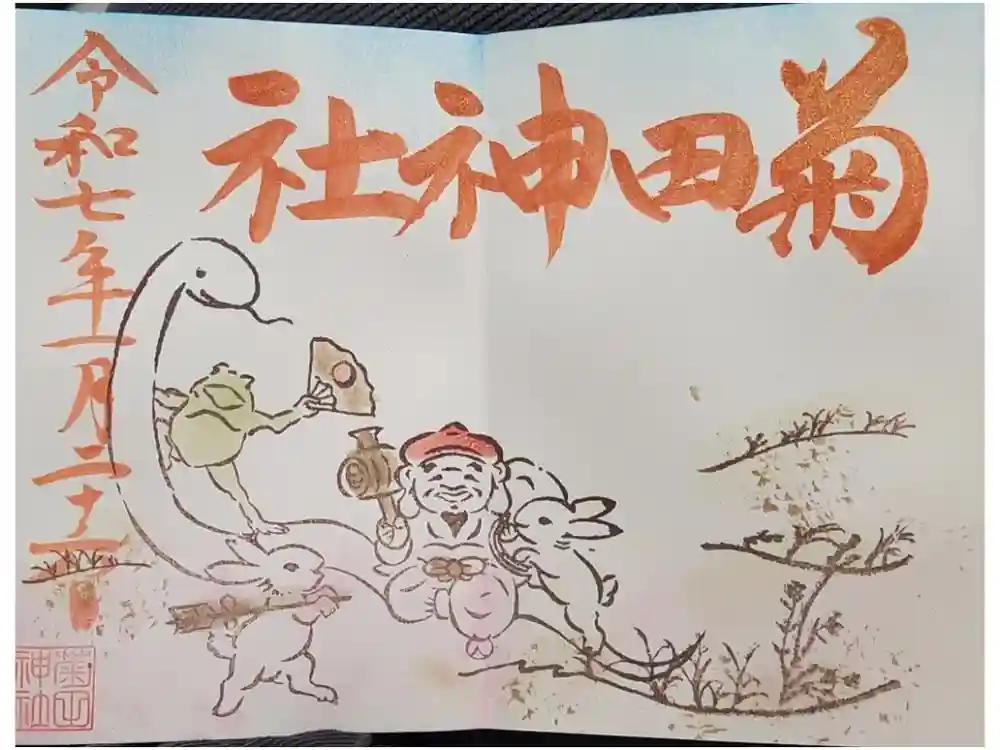 菊田神社
令和七年一月二十一日
菊田
神社